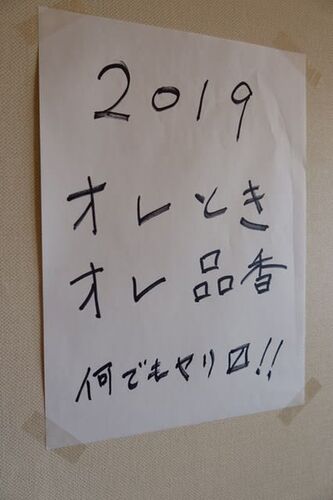 2019
オレとき
オレ品香
何でもヤリ〼!!